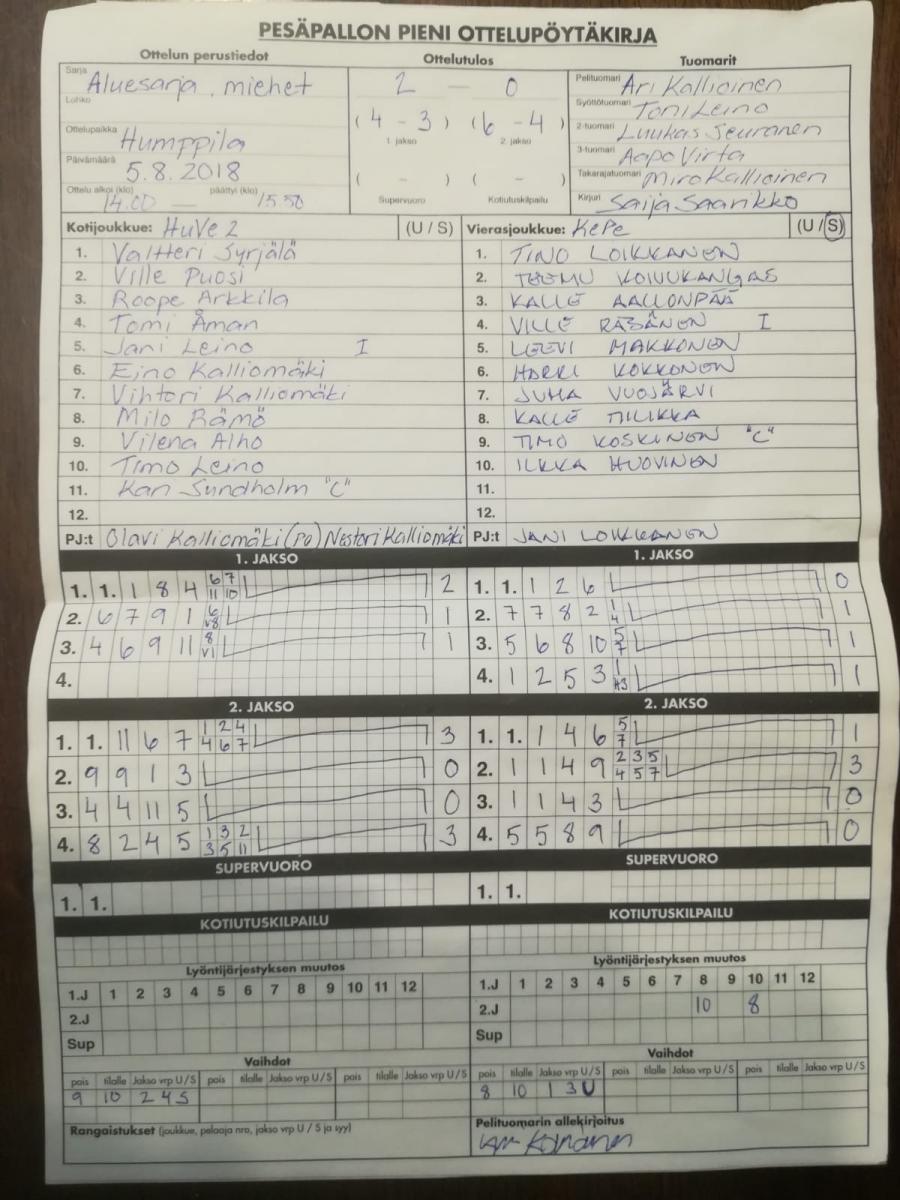 PESÄPALLON PIENI OTTELUPÖYTÄKIRJA
Ottelun perustiedot Ottelutulos Tuomarit
Sarja Aluesarja, miehet
Lohko
Ottelupaikka Humppila
Päivämäärä 5.8.2018
Ottelu alkoi (klo) päättyi (klo)
14.00 — 15.50
2 — 0
(4 - 3) (6 - 4)
1. jakso 2. jakso
( - ) ( - )
Supervuoro Kotiutuskilpailu
Pelituomari Ari Kallioinen
Syöttötuomari Toni Leino
2-tuomari Luukas Seuranen
3-tuomari Aapo Virta
Takarajatuomari Miro Kallioinen
Kirjuri Saija Saarikko
Kotijoukkue: HuVe 2 (U / S)
1. Valtteri Syrjälä
2. Ville Puosi
3. Roope Arkkila
4. Tomi Åman
5. Jani Leino I
6. Eino Kalliomäki
7. Vihtori Kalliomäki
8. Milo Rämö
9. Vilena Alho
10. Timo Leino
11. Kari Sundholm "C"
12.
PJ:t Olavi Kalliomäki (PO) Nestori Kalliomäki
Vierasjoukkue: KePe (U / S)
1. TINO LOIKKANEN
2. TEEMU KOIVUKANGAS
3. KALLE AALLONPÄÄ
4. VILLE RÄSÄNEN I
5. LEEVI MAKKONEN
6. HARRI KOKKONEN
7. JUHA VUOJÄRVI
8. KALLE TILIKKA
9. TIMO KOSKINEN "C"
10. ILKKA HUOVINEN
11.
12.
PJ:t JANI LOIKKANEN
1. JAKSO
1. 1. 1 8 4 6 7 11 10 2
2. 6 7 9 1 6 v8 1
3. 4 6 9 11 8 v1 1
4.
1. JAKSO
1. 1. 1 2 6 0
2. 7 7 8 2 1 4 1
3. 5 6 8 10 5 7 1
4. 1 2 5 3 1 H3 1
2. JAKSO
1. 1. 11 6 7 1 2 4 4 6 7 3
2. 9 9 1 3 0
3. 4 4 11 5 0
4. 8 2 4 5 1 3 2 3 5 11 3
2. JAKSO
1. 1. 1 4 6 5 7 1
2. 1 1 4 9 2 3 5 4 5 7 3
3. 1 1 4 3 0
4. 5 5 8 9 0
SUPERVUORO
1. 1.
SUPERVUORO
1. 1.
KOTIUTUSKILPAILU
KOTIUTUSKILPAILU
Lyöntijärjestyksen muutos
1.J 1 2 3 4 5 6 7 8 9 10 11 12
2.J
Sup
Lyöntijärjestyksen muutos
1.J 1 2 3 4 5 6 7 8 9 10 11 12
2.J 10 8
Sup
Vaihdot
pois tilalle Jakso vrp U / S pois tilalle Jakso vrp U / S pois tilalle Jakso vrp U / S
9 10 2 4 S
Rangaistukset (joukkue, pelaaja nro, jakso vrp U / S ja syy)
Vaihdot
pois tilalle Jakso vrp U / S pois tilalle Jakso vrp U / S pois tilalle Jakso vrp U / S
8 10 1 3 U
Pelituomarin allekirjoitus